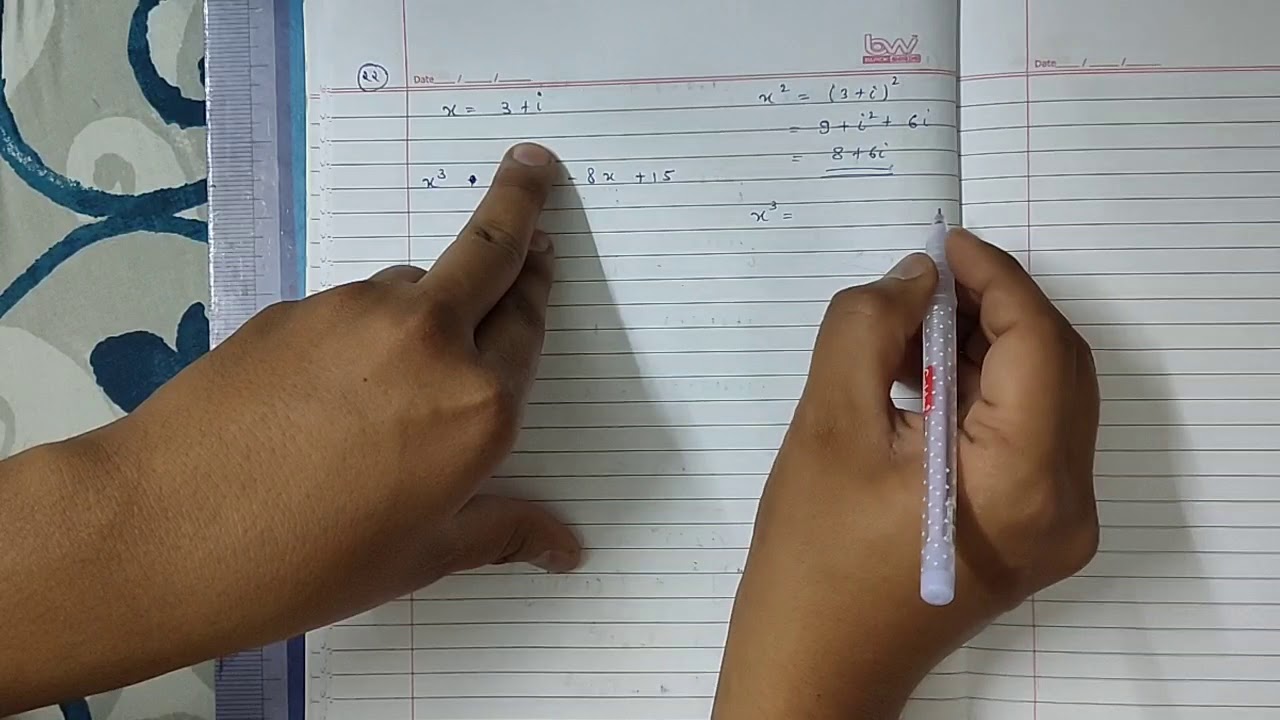 22
Date ___/___/___
x = 3 + i
x³ - 8x + 15
bw
x² = (3 + i)²
= 9 + i² + 6i
= 8 + 6i
x³ =
Date ___/___/___